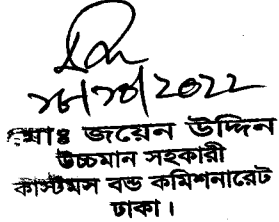 2022
মোঃ জয়েন উদ্দিন
উচ্চমান সহকারী
কাস্টমস বন্ড কমিশনারেট
ঢাকা।